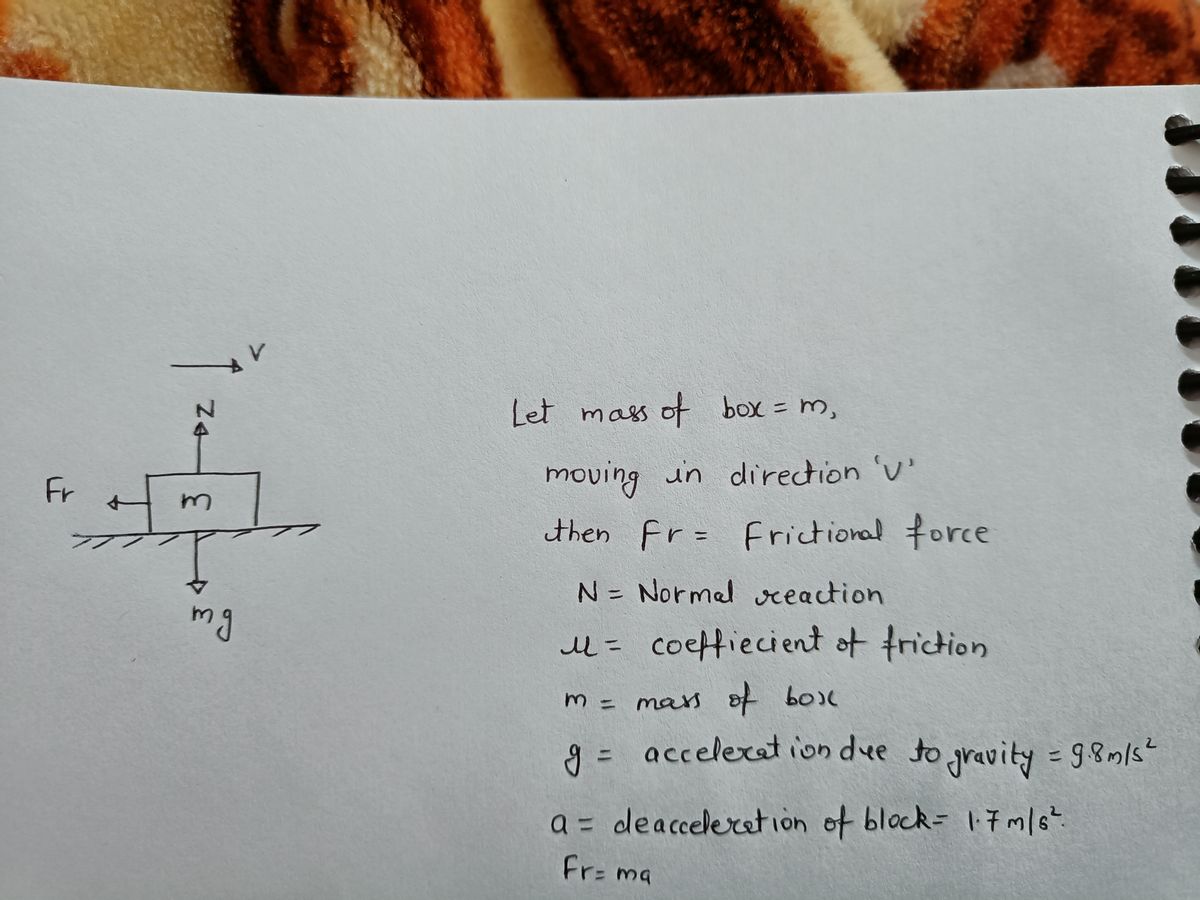 V
N
Fr
m
mg
Let mass of box = m,
moving in direction 'v'
then Fr = Frictional force
N = Normal reaction
μ = coeffiecient of friction
m = mass of box
g = acceleration due to gravity = 9.8 m/s²
a = deacceleration of block = 1.7 m/s².
Fr = ma